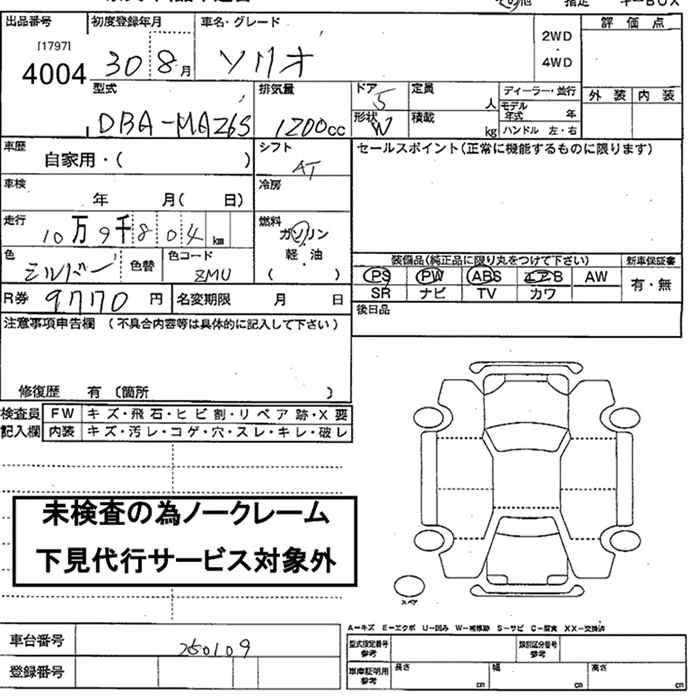 出品番号 初度登録年月 車名・グレード 2WD・4WD 評価点
[1797]
4004 30 8月 ソリオ
型式 排気量 ドア 定員 ディーラー・並行 外装 内装
DBA-MA26S 1200cc 5 人 モデル年式 年
形状 W 積載 kg ハンドル 左・右
車歴 自家用・( ) シフト AT セールスポイント(正常に機能するものに限ります)
車検 年 月( 日) 冷房
走行 10万9千804km 燃料 ガソリン
軽・油
( )
色 シルバー 色替 色コード ZMU
装備品(純正品に限り丸をつけて下さい) 新車保証書
PS PW ABS エアB AW 有・無
SR ナビ TV カワ
R券 9770円 名変期限 月 日 後日品
注意事項申告欄(不具合内容等は具体的に記入して下さい)
修復歴 有〔箇所 〕
検査員 FW キズ・飛石・ヒビ割・リペア跡・X要
記入欄 内装 キズ・汚レ・コゲ・穴・スレ・キレ・破レ
未検査の為ノークレーム
下見代行サービス対象外
スペア
A-キズ E-エクボ U-凹み W-補修跡 S-サビ C-腐食 XX-交換済
車台番号 250109 型式指定番号 参考 類別区分番号 参考
登録番号 車庫証明用 参考 長さ cm 幅 cm 高さ cm